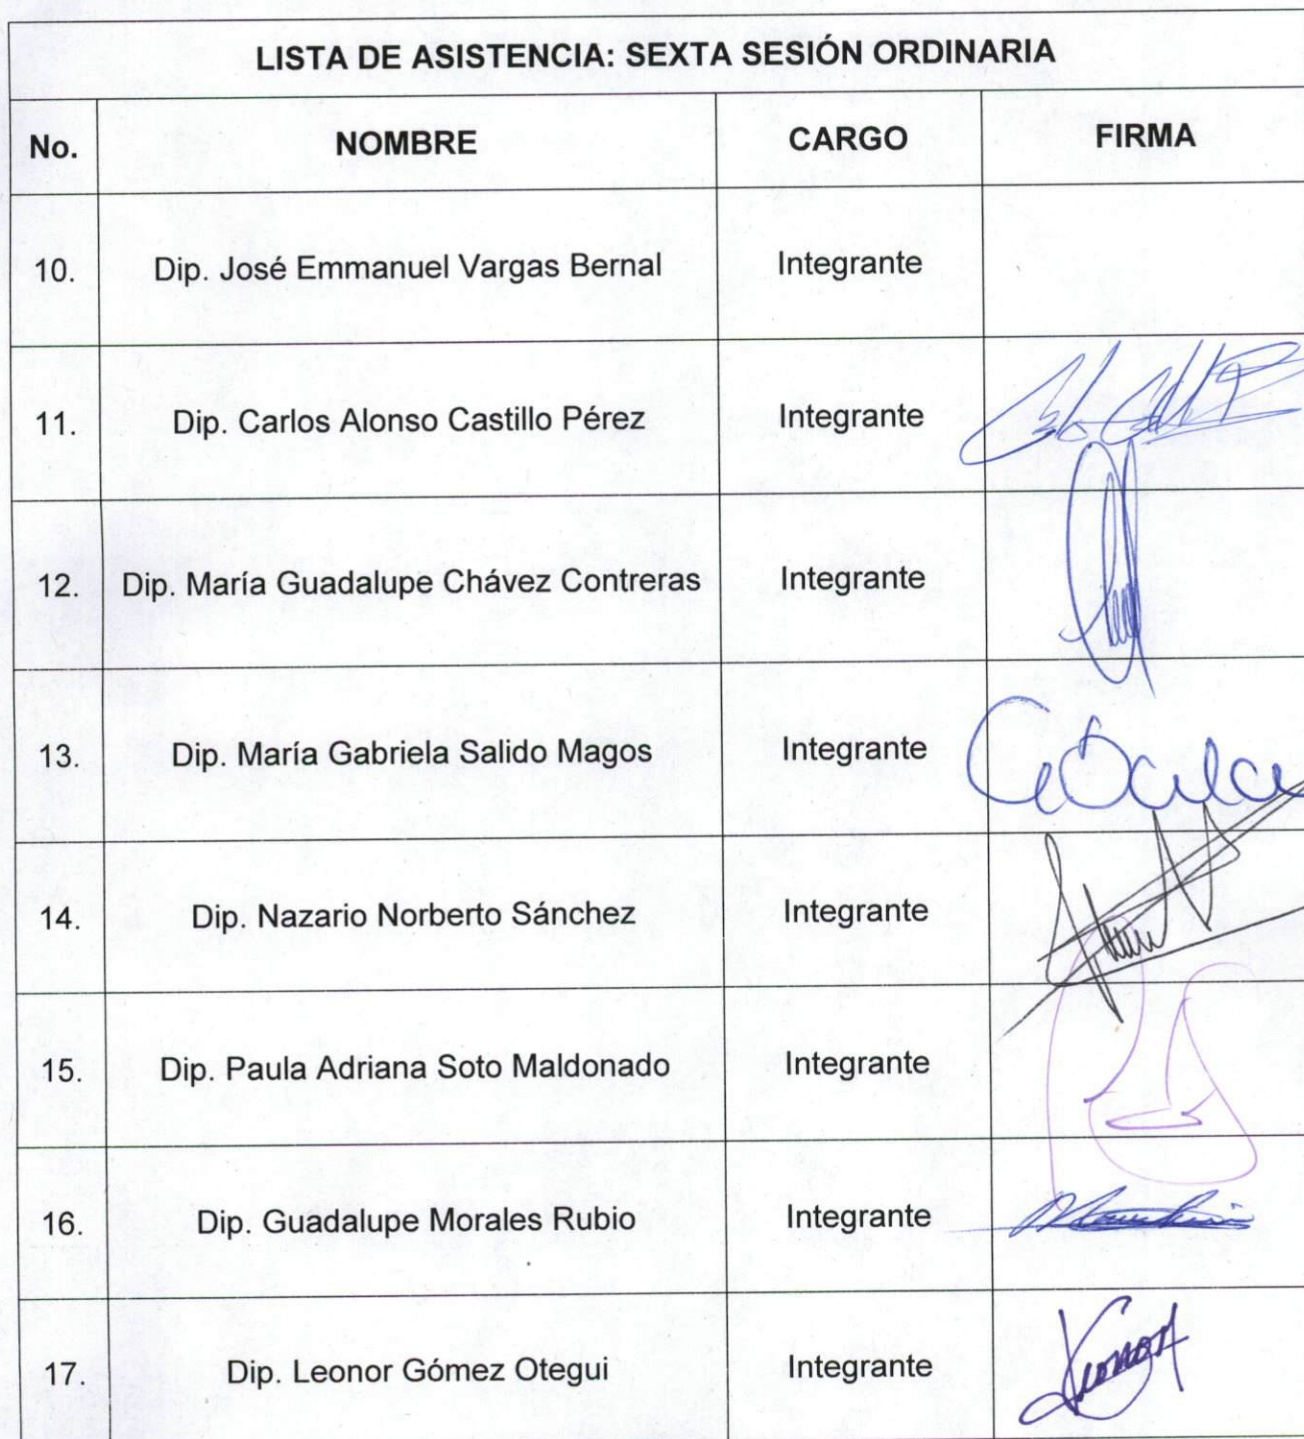 LISTA DE ASISTENCIA: SEXTA SESIÓN ORDINARIA
No. NOMBRE CARGO FIRMA
10. Dip. José Emmanuel Vargas Bernal Integrante
11. Dip. Carlos Alonso Castillo Pérez Integrante
12. Dip. María Guadalupe Chávez Contreras Integrante
13. Dip. María Gabriela Salido Magos Integrante
14. Dip. Nazario Norberto Sánchez Integrante
15. Dip. Paula Adriana Soto Maldonado Integrante
16. Dip. Guadalupe Morales Rubio Integrante
17. Dip. Leonor Gómez Otegui Integrante Leonor